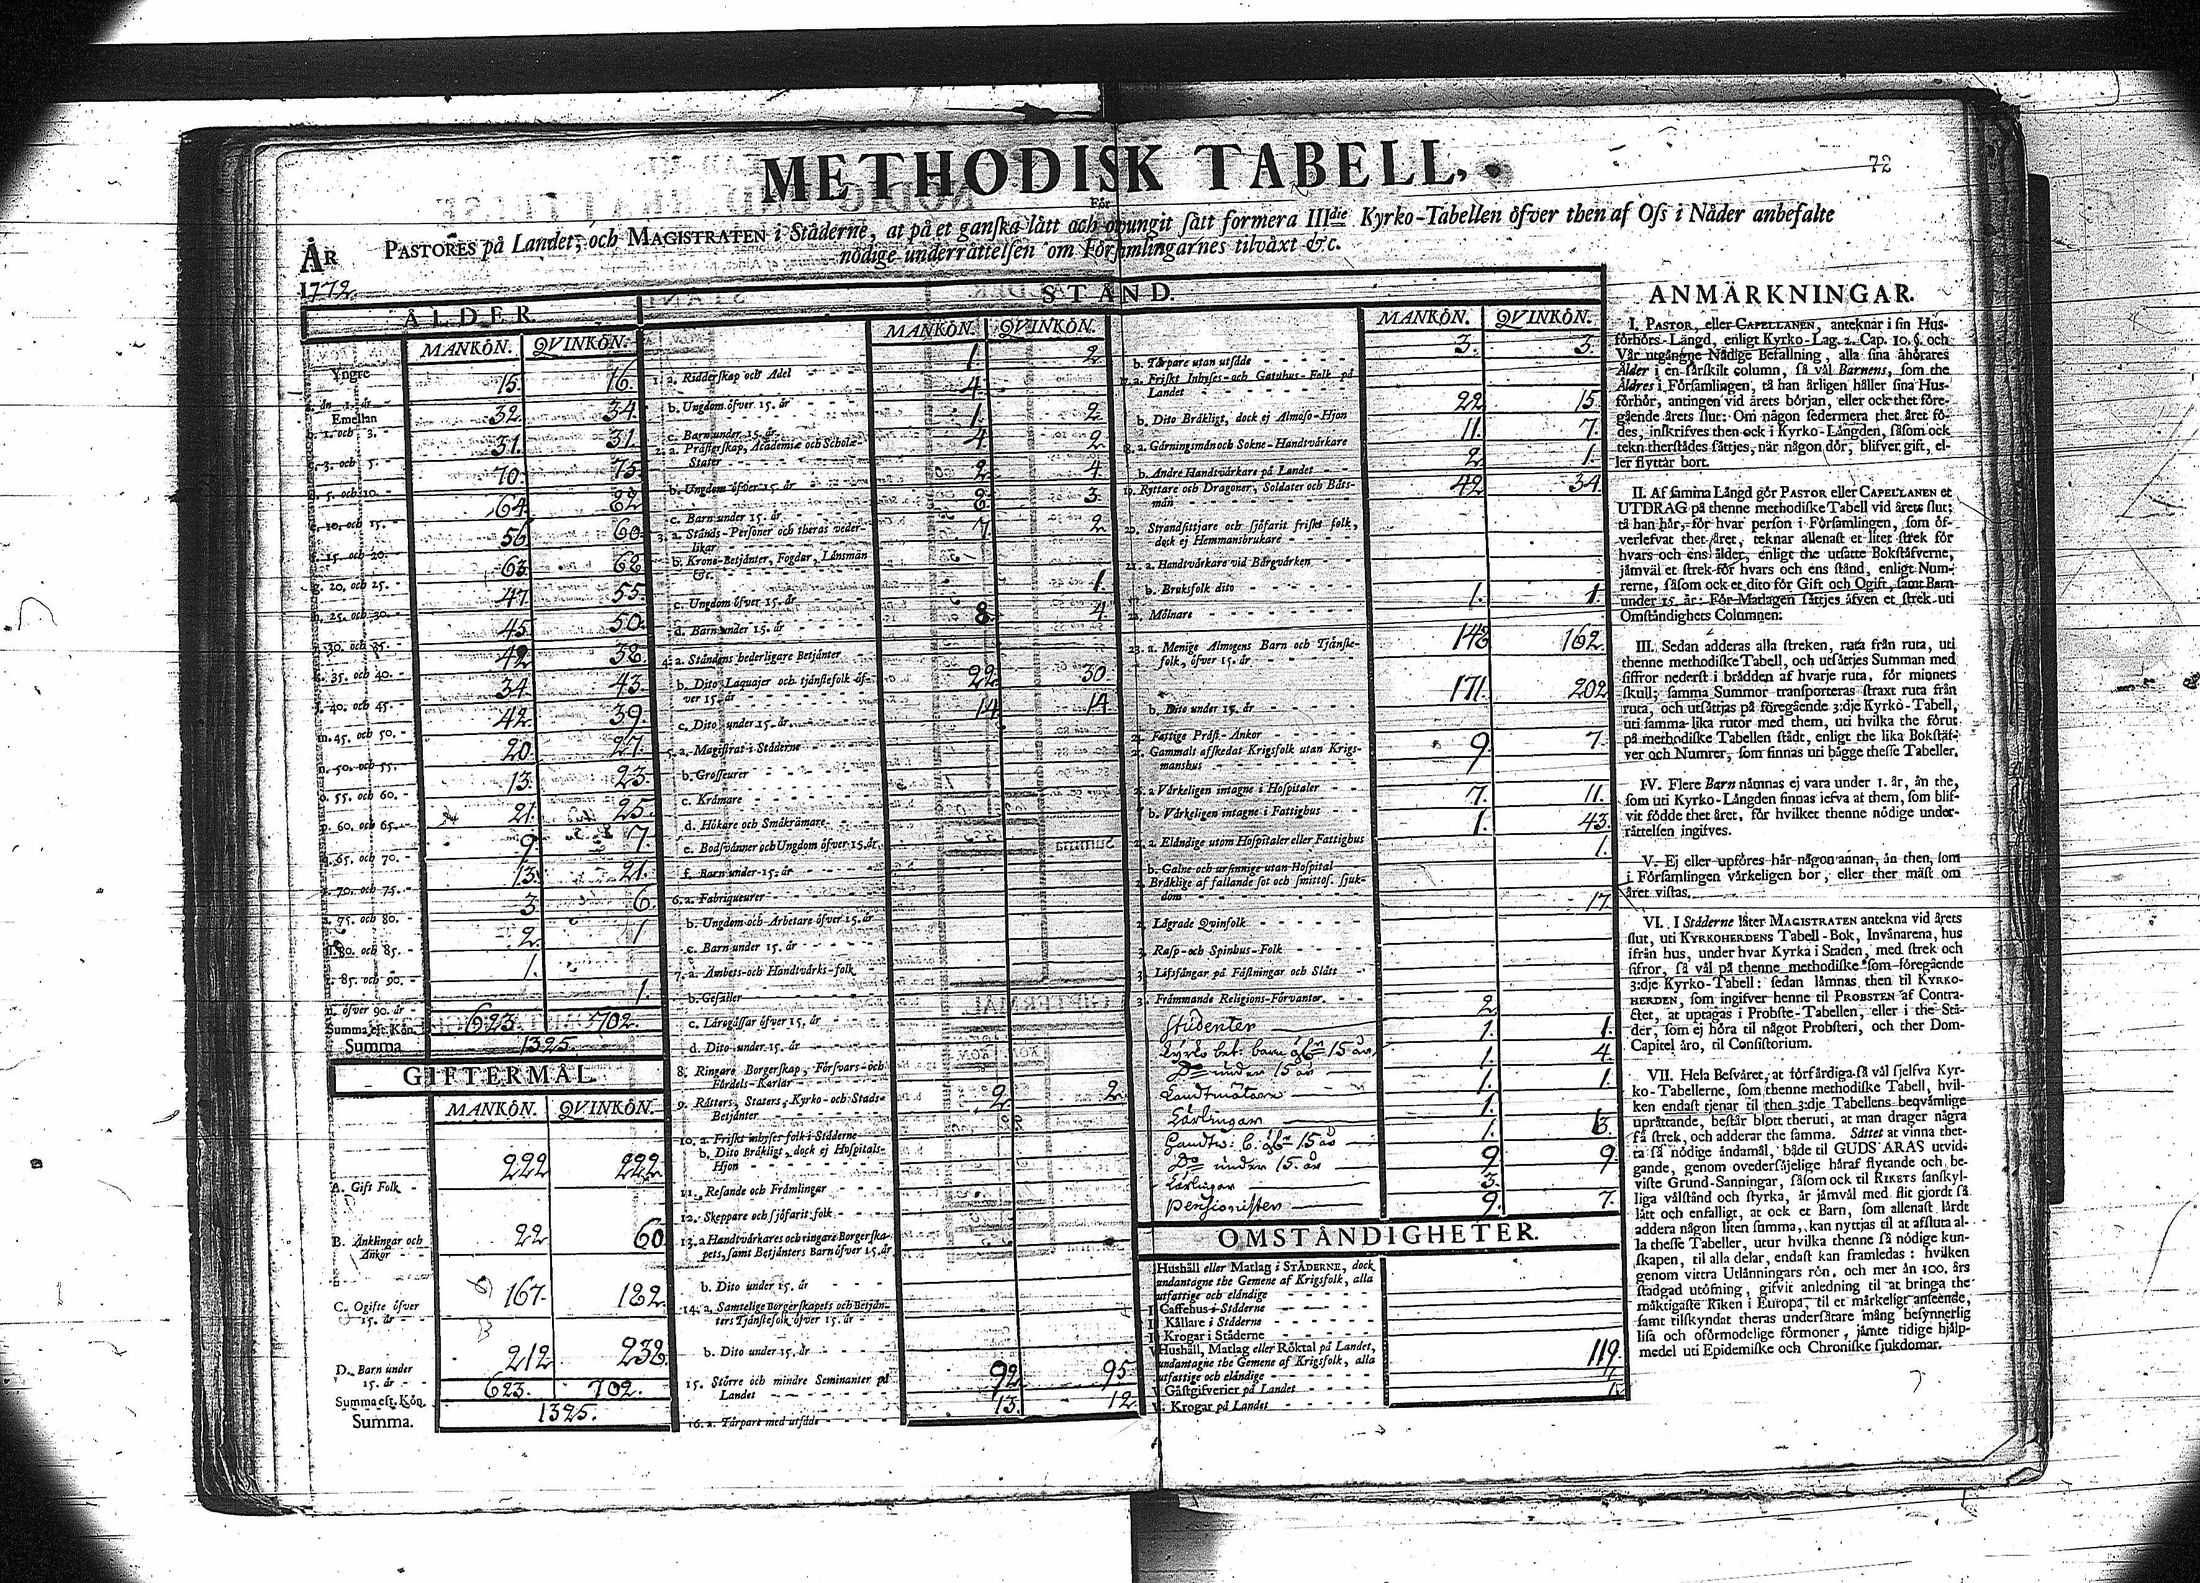 72
METHODISK TABELL,
För
PASTORES på Landet, och MAGISTRATEN i Städerne, at på et ganska lätt och otungit sätt formera IIIdie Kyrko-Tabellen öfver then af Oss i Nåder anbefalte
nödige underrättelsen om Församlingarnes tilväxt &c.
ÅR
1772.
ÅLDER.
MANKÖN. QVINKÖN.
Yngre
än 1. år 15. 16.
Emellan
1. och 3. 32. 34.
3. och 5. 31. 31.
5. och 10. 70. 75.
10. och 15. 64. 82.
15. och 20. 56. 60.
20. och 25. 63. 62.
25. och 30. 47. 55.
30. och 35. 45. 50.
35. och 40. 42. 38.
40. och 45. 34. 43.
m. 45. och 50. 42. 39.
n. 50. och 55. 20. 27.
o. 55. och 60. 13. 23.
p. 60. och 65. 21. 25.
65. och 70. 9. 7.
70. och 75. 13. 21.
75. och 80. 3. 6.
80. och 85. 2. 1
85. och 90. 1.
öfver 90. år 1.
Summa eft. Kön. 623. 702.
Summa 1325.
GIFTERMÅL.
MANKÖN. QVINKÖN.
A. Gift Folk 222 222.
B. Änklingar och
Änkor 22 60
C. Ogifte öfver
15. år 167. 182.
D. Barn under
15. år 212. 238.
Summa eft. Kön. 623. 702.
Summa. 1325.
STÅND.
MANKÖN. QVINKÖN.
1. a. Ridderskap och Adel 1. 2
b. Ungdom öfver 15. år 4.
c. Barn under 15. år 1. 2
2. a. Prästerskap, Academiæ och Scholæ-
Stater 4 2
b. Ungdom öfver 15. år 2. 4.
c. Barn under 15. år 3.
3. a. Stånds-Personer och theras veder-
likar 7. 2
b. Krono-Betjänter, Fogdar, Länsmän
&c.
c. Ungdom öfver 15. år 1.
d. Barn under 15. år 8 4.
4. a. Ståndens hederligare Betjänter
b. Dito Laquajer och tjänstefolk öf-
ver 15. år 22 30.
c. Dito under 15. år 14. 14.
5. a. Magistrat i Städerne
b. Grosseurer
c. Krämare
d. Hökare och Småkrämare
e. Bodsvänner och Ungdom öfver 15. år
f. Barn under 15. år
6. a. Fabriqueurer
b. Ungdom och Arbetare öfver 15. år
c. Barn under 15. år
7. a. Ämbets- och Handtvärks-folk
b. Gesäller
c. Lärogåssar öfver 15. år
d. Dito under 15. år
8. Ringare Borgerskap, Försvars- och
Fördels-Karlar
9. Rätters, Staters, Kyrko- och Stads-
Betjänter 2. 2.
10. a. Friskt inhyses folk i Städerne
b. Dito Bräkligt, dock ej Hospitals-
Hjon
11. Resande och Främlingar
12. Skeppare och sjöfarit folk
13. a Handtvärkares och ringare Borgerska-
pets, samt Betjänters Barn öfver 15. år
b. Dito under 15. år
14. a. Samtelige Borgerskapets och Betjän-
ters Tjänstefolk öfver 15. år
b. Dito under 15. år
15. Större och mindre Seminanter på
Landet 92 95.
16. a. Tårpare med utsäde 13. 12.
MANKÖN. QVINKÖN.
b. Tårpare utan utsäde 3. 3.
17. a. Friskt Inhyses- och Gatuhus-Folk på
Landet
b. Dito Bräkligt, dock ej Almoso-Hjon 22 15.
18. a. Gärningsmän och Sokne-Handtvärkare 11. 7.
b. Andre Handtvärkare på Landet 2. 1.
19. Ryttare och Dragoner, Soldater och Båts-
män 42 34.
20. Strandsittjare och sjöfarit friskt folk,
dock ej Hemmansbrukare
21. a. Handtvärkare vid Bärgvärken
b. Bruksfolk dito
22. Mölnare 1. 1.
23. a. Menige Almogens Barn och Tjänste-
folk, öfver 15. år 162.
b. Dito under 15. år 171. 202
24. Fattige Präst-Änkor
25. Gammalt afskedat Krigsfolk utan Krigs-
manshus 9. 7.
a Värkeligen intagne i Hospitaler
b. Värkeligen intagne i Fattighus 7. 11.
a. Eländige utom Hospitaler eller Fattighus 1. 43.
b. Galne och ursinnige utan Hospital 1.
Bräklige af fallande sot och smittos. sjuk-
dom
Lägrade Qvinfolk 17
Rasp- och Spinhus-Folk
Lifsfångar på Fästningar och Slått
Främmande Religions-Förvanter
Studenter 2.
Kyrko bet: barn öfr 15 år 1. 1.
Do under 15 år 1. 4.
Landtmätare 1. 1.
Lärlingar 1.
Landtm: b. öfr 15 år 1. 3.
Do under 15. år 9. 9.
Lärlingar 3.
Pensionister 9. 7.
OMSTÄNDIGHETER.
Hushåll eller Matlag i STÄDERNE, dock
undantagne the Gemene af Krigsfolk, alla
utfattige och eländige
Caffehus i Städerne
Källare i Städerne
Krogar i Städerne
Hushåll, Matlag eller Röktal på Landet,
undantagne the Gemene af Krigsfolk, alla
utfattige och eländige 119.
Gästgifverier på Landet 1.
Krogar på Landet 1.
ANMÄRKNINGAR.
I. PASTOR, eller CAPELLANEN, anteknar i sin Hus-
förhörs-Längd, enligt Kyrko-Lag. 2. Cap. 10. §. och
Vår utgångne Nådige Befallning, alla sina åhörares
Ålder i en särskilt column, så väl Barnens, som the
Äldres i Församlingen, tå han årligen håller sina Hus-
förhör, antingen vid årets början, eller ock thet före-
gående årets slut: Om någon sedermera thet året fö-
des, inskrifves then ock i Kyrko-Längden, såsom ock
tekn therstädes sättjes, när någon dör, blifver gift, el-
ler flyttar bort.
II. Af samma Längd gör PASTOR eller CAPELLANEN et
UTDRAG på thenne methodiske Tabell vid årets slut;
tå han här, för hvar person i Församlingen, som öf-
verlefvat thet året, teknar allenast et litet strek för
hvars och ens ålder, enligt the utsatte Bokstäfverne,
jämväl et strek för hvars och ens stånd, enligt Num-
rerne, såsom ock et dito för Gift och Ogift, samt Barn
under 15. år: För Matlagen sättjes äfven et strek uti
Omständighets Columnen.
III. Sedan adderas alla streken, ruta från ruta, uti
thenne methodiske Tabell, och utsättjes Summan med
siffror nederst i brädden af hvarje ruta, för minnets
skull; samma Summor transporteras straxt ruta från
ruta, och utsättjas på föregående 3:dje Kyrko-Tabell,
uti samma lika rutor med them, uti hvilka the förut
på methodiske Tabellen stådt, enligt the lika Bokstäf-
ver och Numrer, som finnas uti bägge thesse Tabeller.
IV. Flere Barn nämnas ej vara under 1. år, än the,
som uti Kyrko-Längden finnas lefva af them, som blif-
vit födde thet året, för hvilket thenne nödige under-
rättelsen ingifves.
V. Ej eller upföres här någon annan, än then, som
i Församlingen värkeligen bor, eller ther mäst om
året vistas.
VI. I Städerne låter MAGISTRATEN antekna vid årets
slut, uti KYRKOHERDENS Tabell-Bok, Invånarena, hus
ifrån hus, under hvar Kyrka i Staden, med strek och
sifror, så väl på thenne methodiske som föregående
3:dje Kyrko-Tabell: sedan lämnas then til KYRKO-
HERDEN, som ingifver henne til PROBSTEN af Contra-
ctet, at uptagas i Probste-Tabellen, eller i the Stä-
der, som ej höra til något Probsteri, och ther Dom-
Capitel äro, til Consistorium.
VII. Hela Besväret, at förfärdiga så väl sjelfva Kyr-
ko-Tabellerne, som thenne methodiske Tabell, hvil-
ken endast tjenar til then 3:dje Tabellens beqvämlige
uprättande, består blott theruti, at man drager några
få strek, och adderar the samma. Sättet at vinna thet-
ta så nödige ändamål, både til GUDS ÄRAS utvid-
gande, genom ovedersäjelige häraf flytande och be-
viste Grund-Sanningar, såsom ock til RIKETS sanskyl-
liga välstånd och styrka, är jämväl med flit gjordt så
lätt och enfalligt, at ock et Barn, som allenast lärdt
addera någon liten summa, kan nyttjas til at afsluta al-
la thesse Tabeller, utur hvilka thenne så nödige kun-
skapen, til alla delar, endast kan framledas: hvilken
genom vittra Utlänningars rön, och mer än 100. års
stadgad utöfning, gifvit anledning til at bringa the
mäktigaste Riken i Europa, til et märkeligt anseende,
samt tilskyndat theras undersåtare mång besynnerlig
lisa och oförmodelige förmoner, jämte tidige hjälp-
medel uti Epidemiske och Chroniske sjukdomar.